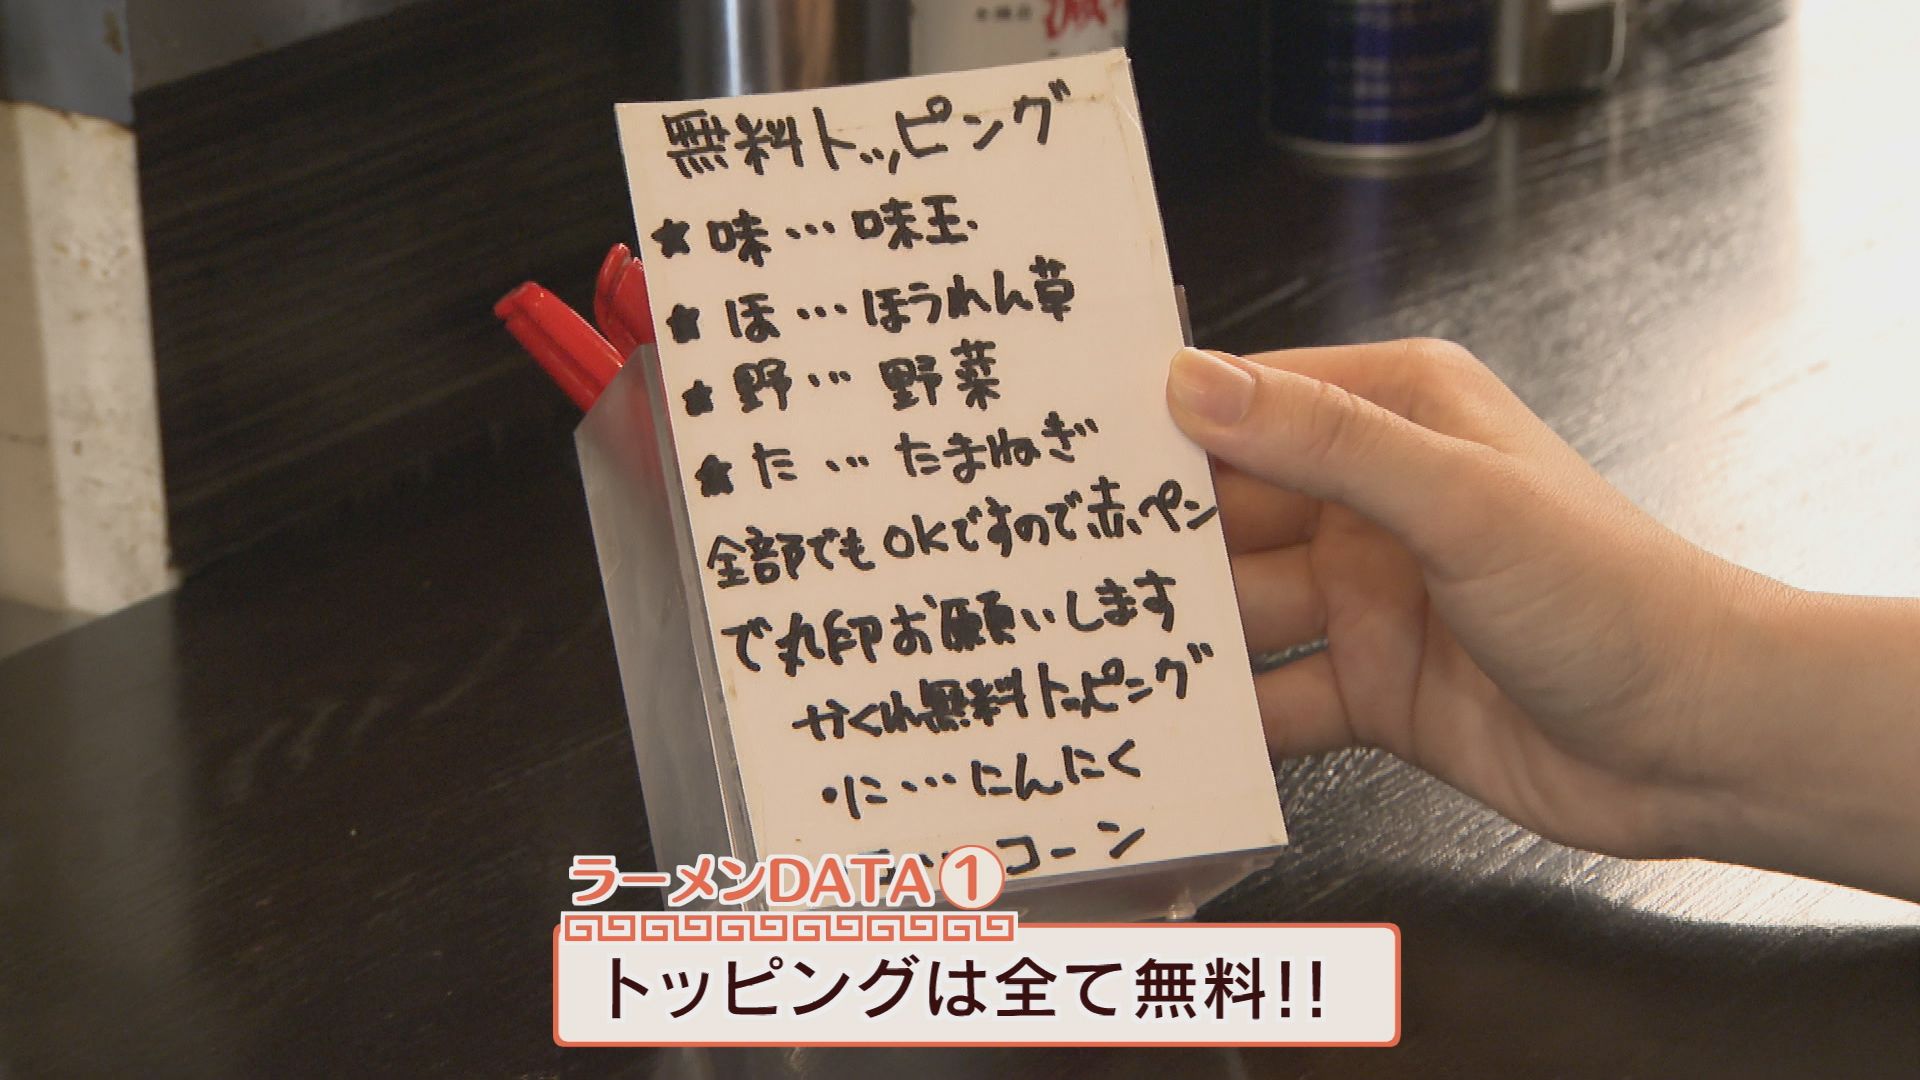 無料トッピング
★味…味王.
★ほ…ほうれん草
★野…野菜
★た…たまねぎ
全部でもOKですので赤ペン
で丸印お願いします
かくれ無料トッピング
・に…にんにく
コーン
ラーメンDATA①
トッピングは全て無料!!